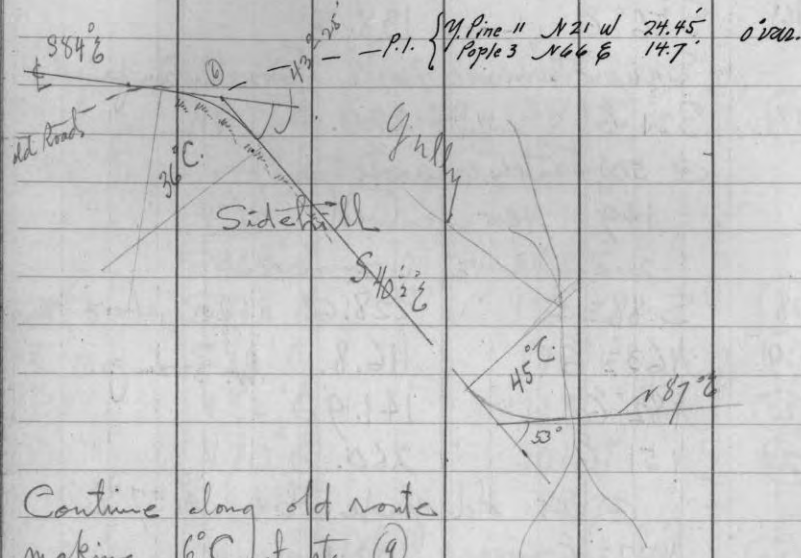 S84°E
⑥
43°-25'
P.I. { Y. Pine 11 N21 W 24.45' 0° var.
Pople 3 N66 E 14.7'
℄
old Road
36°C.
Gully
Sidehill
S40½°E
45°C.
N87°E
53°
Continue along old route
making 6°C at sta ⑨